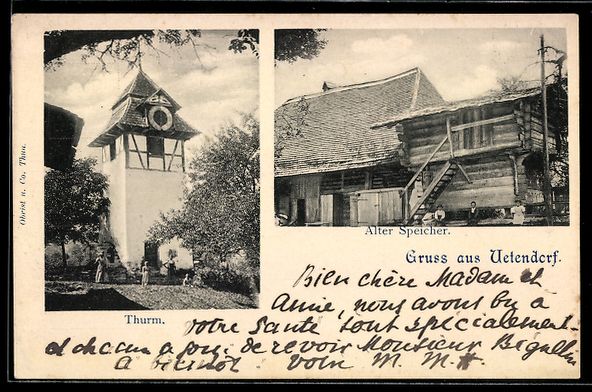 Alter Speicher.
Gruss aus Uetendorf.
Obrist u. Co. Thun.
Thurm.
Bien chère Madam et
Amie, nous avons bu à
votre santé tout spécialement
et chacun a de revoir Monsieur
à bientôt votre M. M.